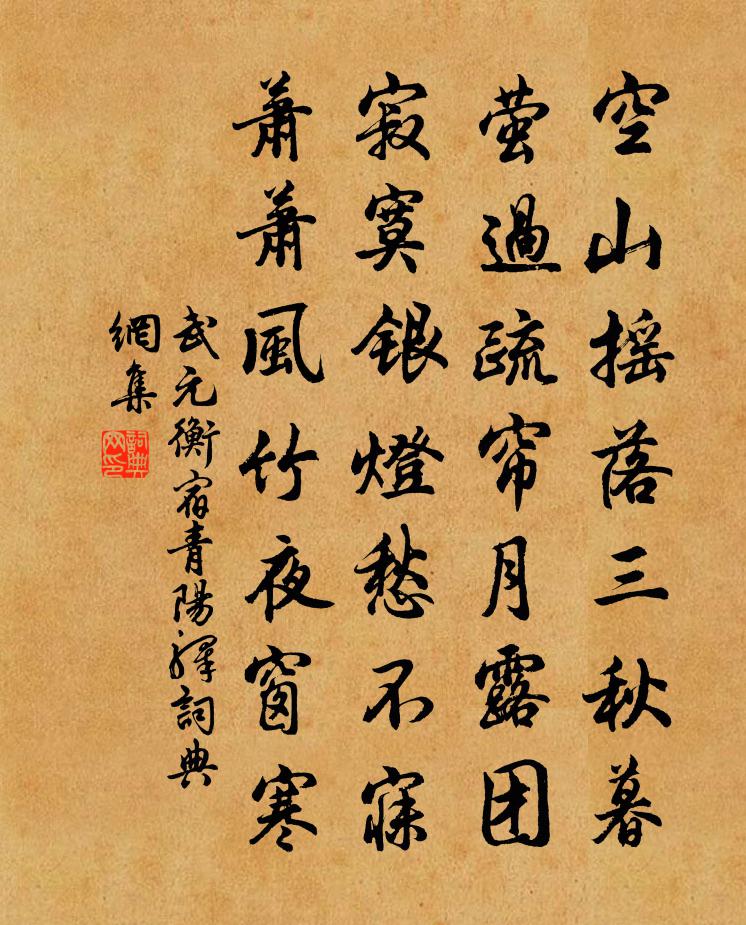 空山摇落三秋暮
萤過疏帘月露团
寂寞银燈愁不寐
萧萧風竹夜窗寒
武元衡宿青陽驛詞典
網集
詞典
网印